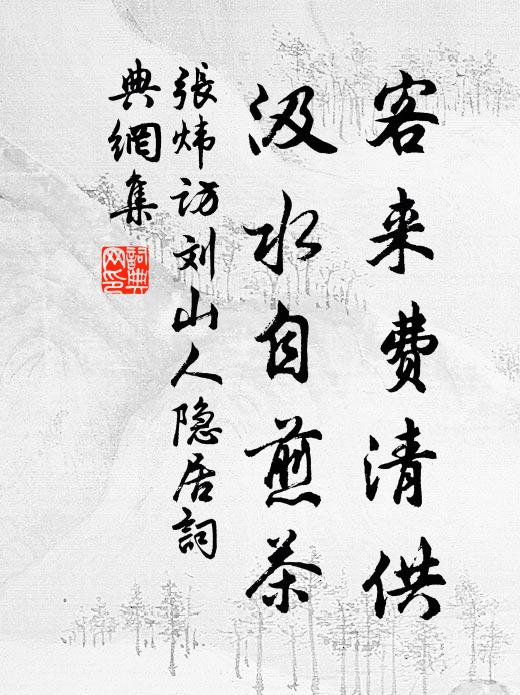 客来费清供
汲水自煎茶
張炜访刘山人隐居詞
典網集
詞典
网印